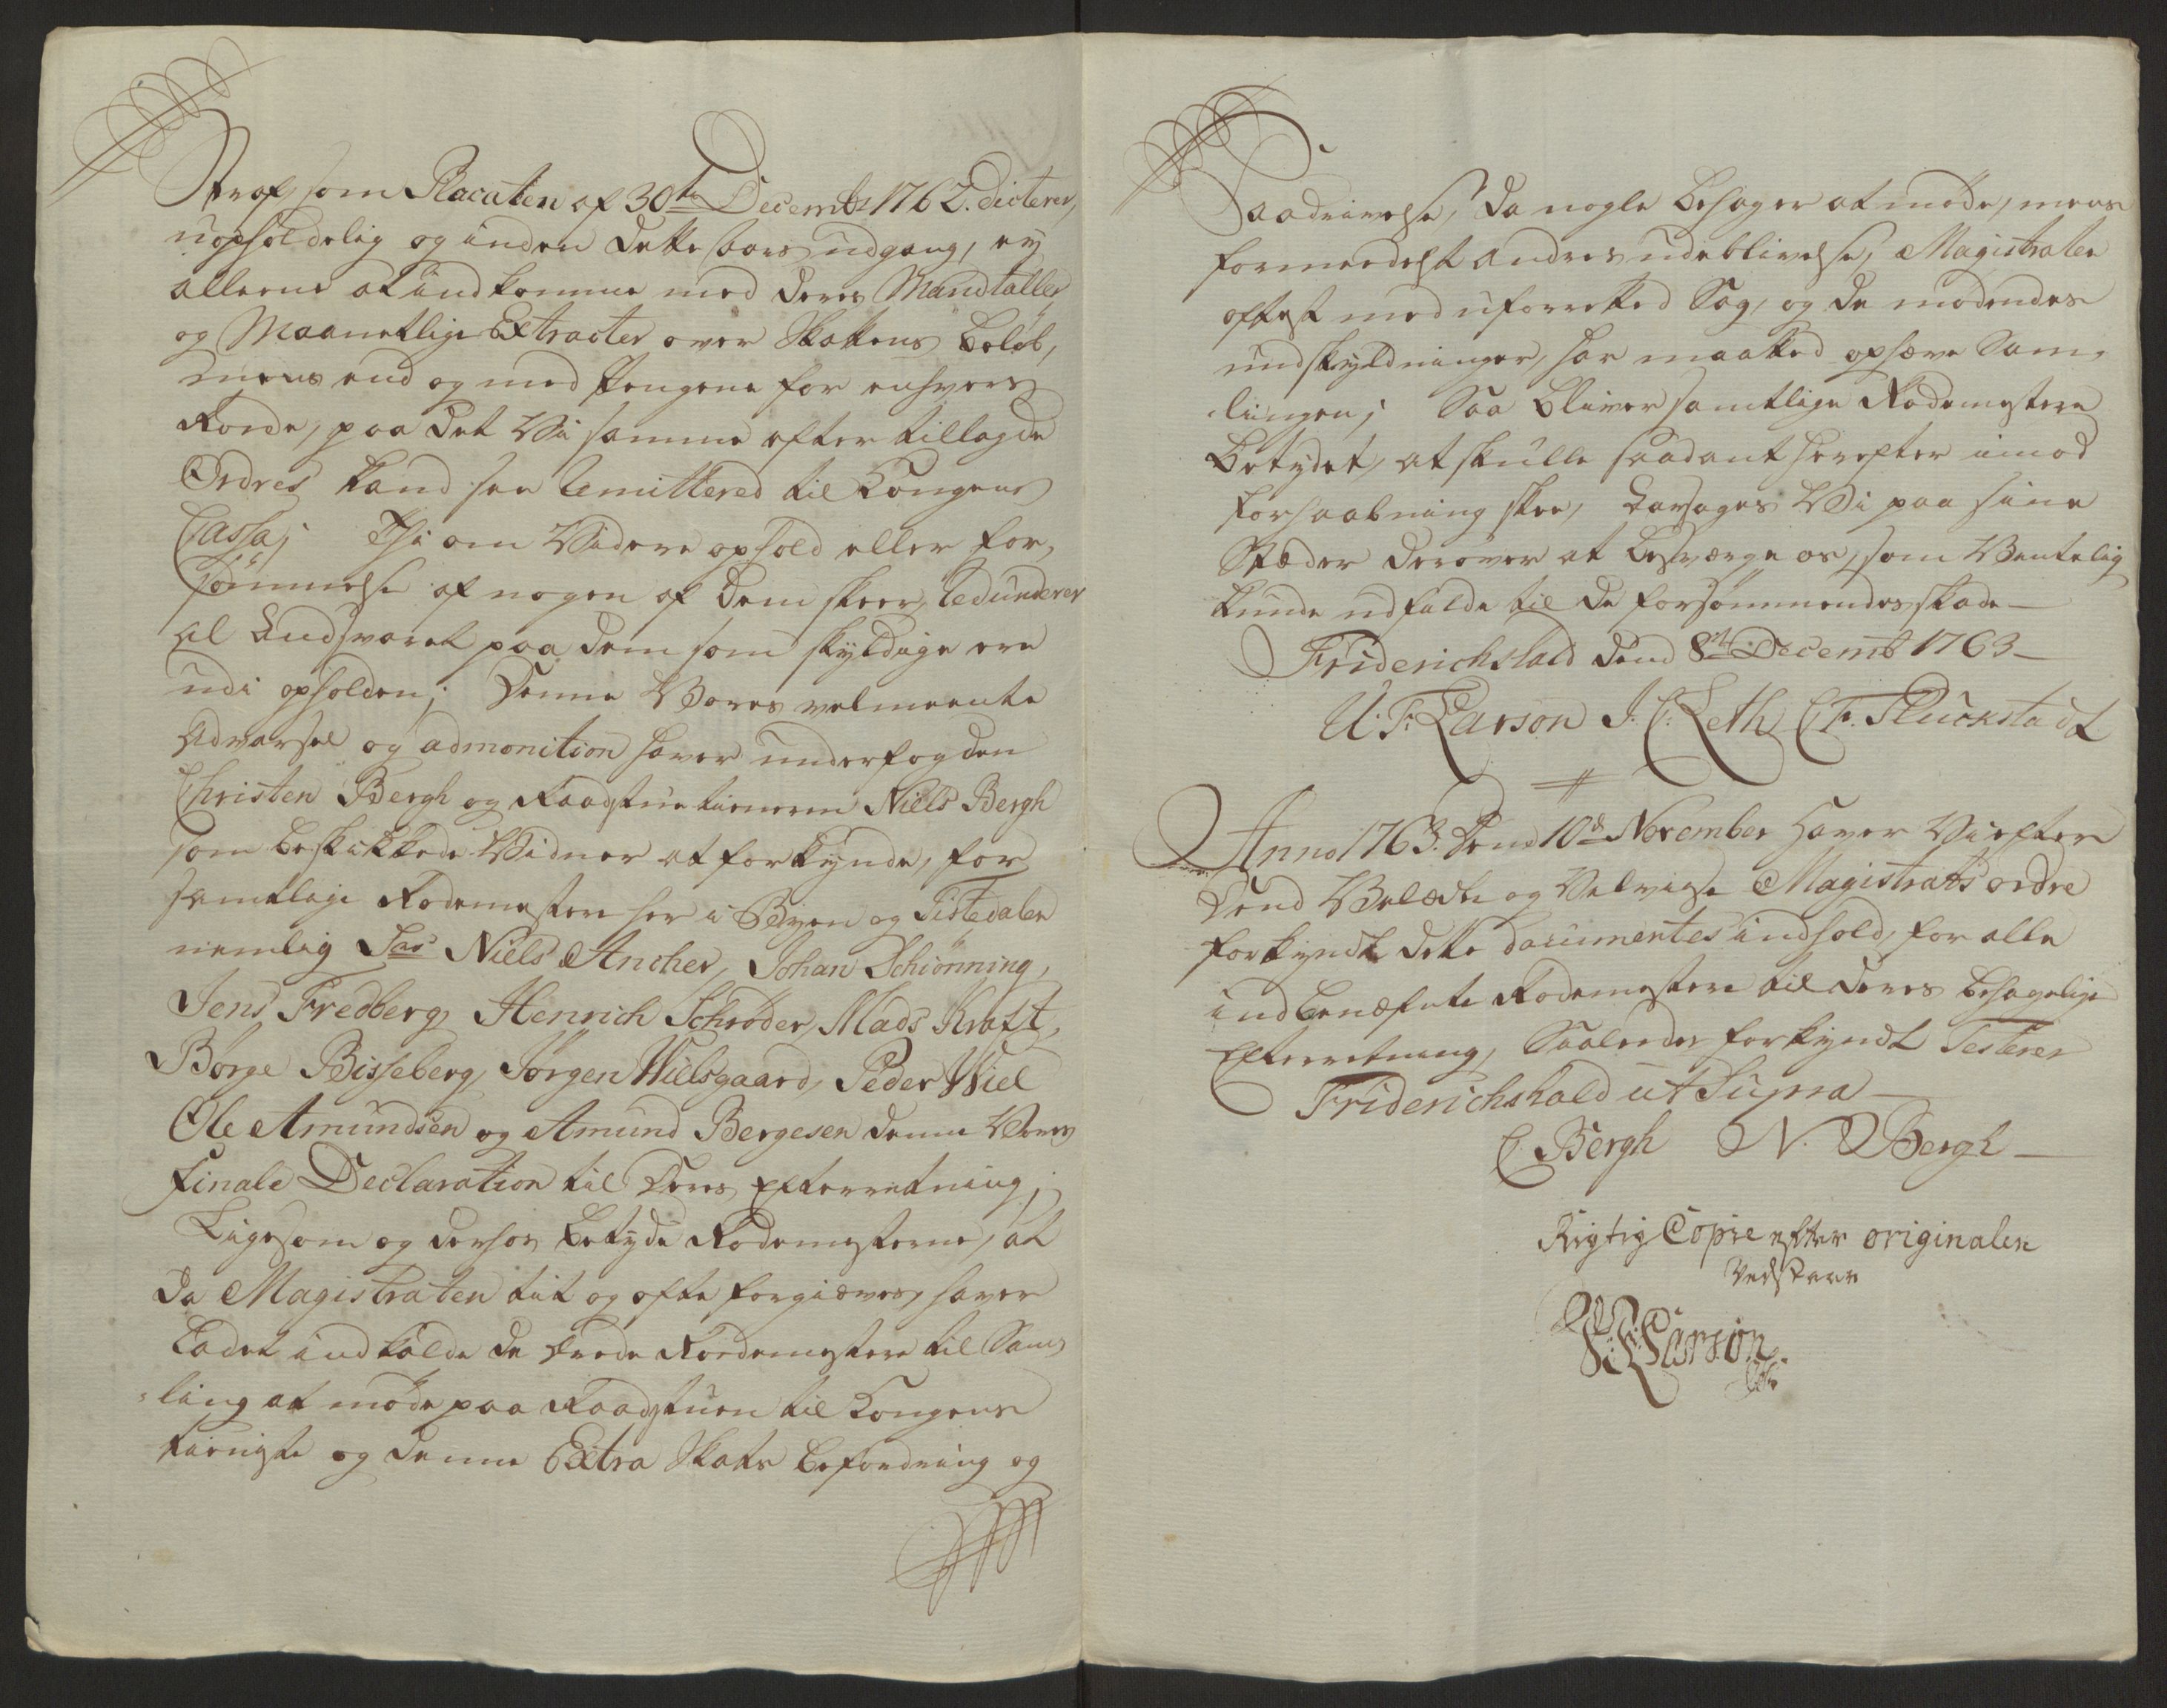 Straf som Placaten af 30te Decembr 1762. dicterer,
uopholdelig og inden dette Aars udgang, ey
alleene at indkomme med deres Mandtaller
og Maanetlige Extracter over Skattens beløb,
mens end og med Pengene for enhvers
Rode, paa det Vi samme efter tillagde
Ordres kand faa remittered til Kongens
Cassa; Thi om Videre ophold eller for,
sømmelse af nogen af dem skeer, redunderer
al Andsvaret paa dem som skyldige ere
udi opholden; Denne Vores velmeente
Advarsel og admonition haver underfogden
Christen Bergh og Raadstuetienerne Niels Bergh
som beskikkede Vidner at forkynde, for
samtlige Rodemestere her i Byen og Tistedalen
nemlig Sr Niels Ancher, Johan Schiønning,
Jens Fredberg, Henrich Schrøder, Mads Kraft,
Børge Bisseberg, Jørgen Wielsgaard, Peder Wiel
Ole Amundsen og Amund Bergesen denne Vores
finale Declaration til Deres Efterretning;
Ligesom og derhos betyde Rodemesterne, at
da Magistraten tit og ofte forgieves, haver
ladet indkalde de Rodemestere til Sam,
ling at møde paa Raadstuen til Kongens
tieniste og denne Extra Skats befordring og
Inddrivelse, da nogle behager at møde, mens
formedelst andres udeblivelse, Magistraten
oftest med uforretted Sag, og de mødendes
undskyldninger, har maatted ophæve Sam,
lingen; Saa bliver samtlige Rodemestere
betydet, at skulle saadant herefter imod
forhaabning skee, Vi paa sine
Stæder derover at besværge os, som Ventelig
kunde udfalde til de forsømmendes skade —
Friderichshald dend 8de Decemb 1763 —
U. F. Larson J. C. Leth C F. Stuckstadt
Anno 1763. Dend 10de November haver Vi efter
Dend Velædle og Velviise Magistrats ordre
forkyndt dette documentes indhold, for alle
indbenæfnte Rodemestere til deres behagelige
Efterretning, Saaledes forkyndt Testerer
Friderichshald ut Supra —
C Bergh N. Bergh —
Rigtig Copie efter originalen
Vedstaar
Larson